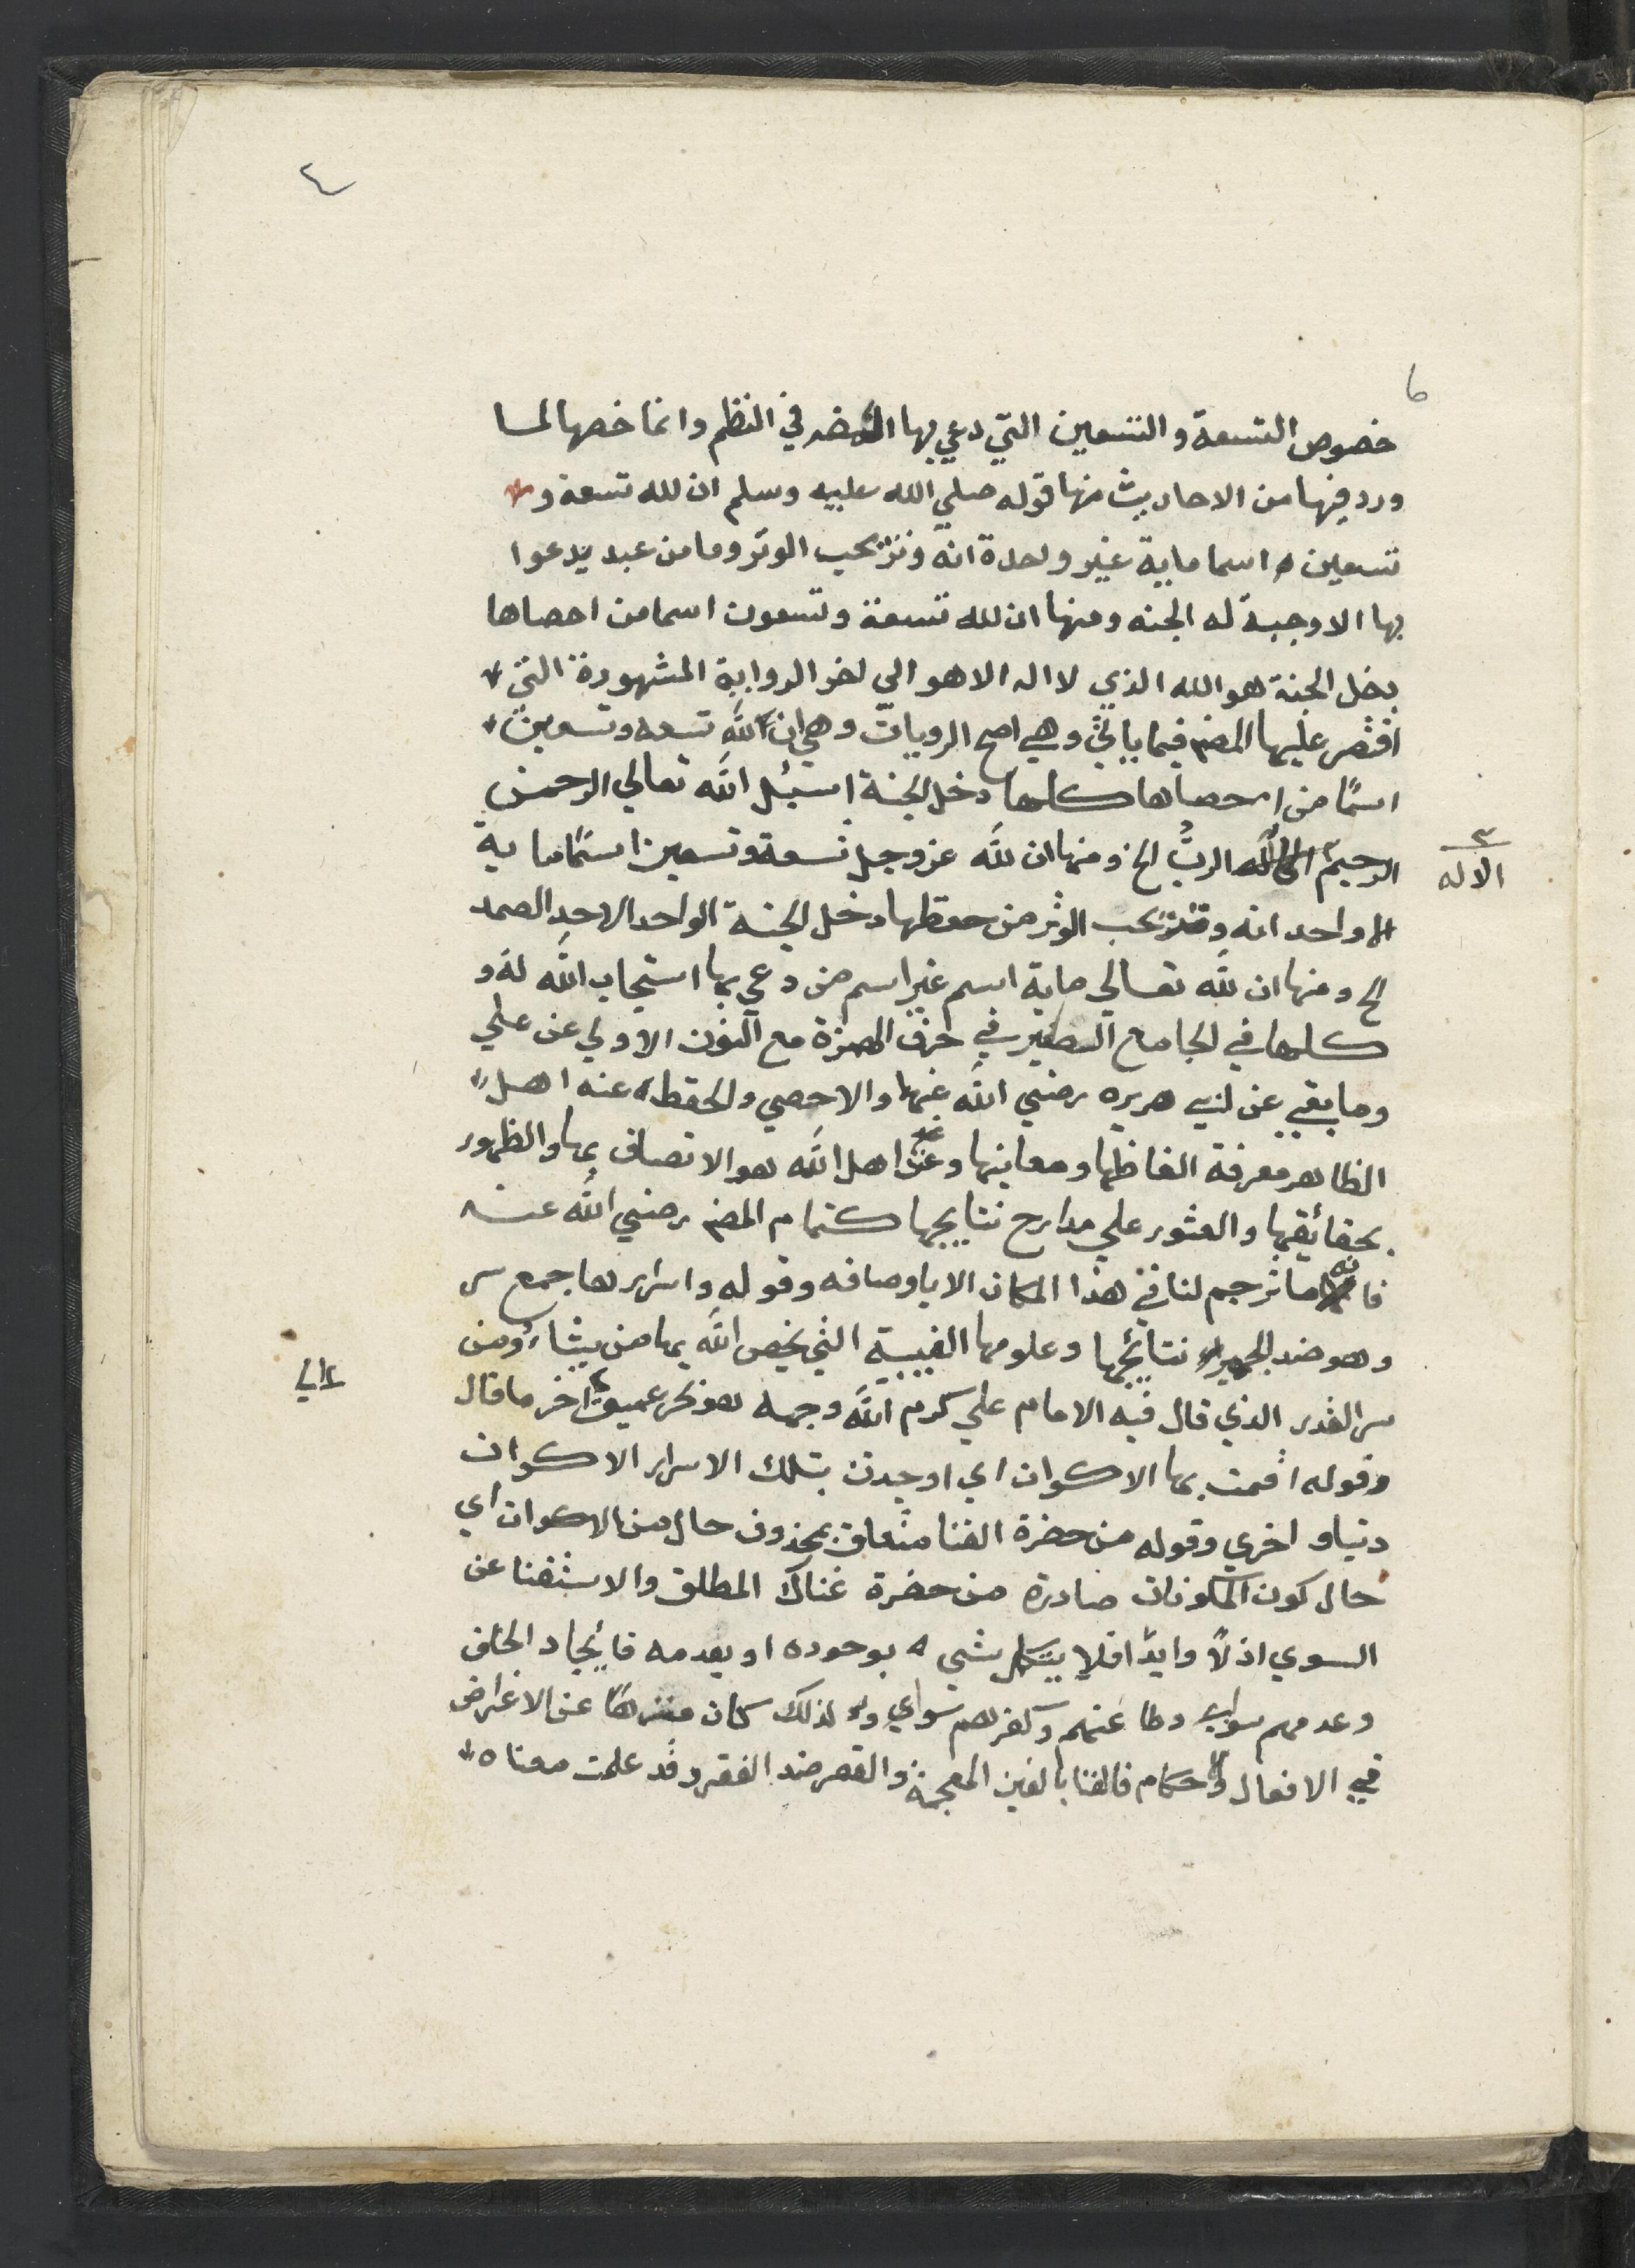 ٤
٦
خصوص التسعة والتسعين التي دعي بها المص في النظم وانما خصها لما
ورد فيها من الاحاديث منها قوله صلي الله عليه وسلم ان لله تسعة و
تسعين اسما ماية غير واحدة انه وتر يحب الوتر وما من عبد يدعوا
بها الا وجبة له الجنه ومنها ان لله تسعة وتسعون اسما من احصاها
دخل الجنة هو الله الذي لا اله الا هو الي اخر الرواية المشهورة التي
اقتصر عليها المص فيما ياتي وهي اصح الرويات وهي ان لله تسعه وتسعين
اسمًا من احصاها كلها دخل الجنة اسئل الله تعالي الرحمن
الرحيم الاله الربُّ الخ ومنها ان لله عز وجل تسعة وتسعين اسمًا ماية
الا واحد انه وتر يحب الوتر من حفظها دخل الجنة الواحد الاحد الصمد
الخ ومنها ان لله تعالي ماية اسم غير اسم من دعي بها استجاب الله له و
كلها في الجامع الصغير في حرف الهمزة مع النون الاولي عن علي
وما بقي عن ابي هريره رضي الله عنهما والاحصي والحفظ عند اهل
الظاهر معرفة الفاظها ومعانيها وعند اهل الله هو الاتصاف بها والظهور
بحقائقها والعثور علي مدارج نتايجها كتمام المص رضي الله عنه
فانه ما ترجم لنا في هذا المكان الا باوصافه وقوله واسرارها جمع سر
وهو ضد الجهر نتائجها وعلومها الغيبية التي يخص الله بها من يشاء ومن
سر القدر الذي قال فيه الامام علي كرم الله وجهه هو بحر عميق اخر ما قال
وقوله اقمت بها الاكوان اي اوجدت بتلك الاسرار الاكوان
دنيا واخري وقوله من حضرة الغنا متعلق بمحذوف حال من الاكوان اي
حال كون المكونات صادرة من حضرة غناك المطلق والاستغنا عن
السوي اذلاً وابدًا فلا بشي بوجوده او بعدمه فايجاد الخلق
وعدمهم سواي وطاعتهم وكفرهم سواي ولذلك كان منزهًا عن الاغراض
في الافعال والاحكام فالغنا بالغين المعجمة والقصر ضد الفقر وقد علمت معناه
الاله